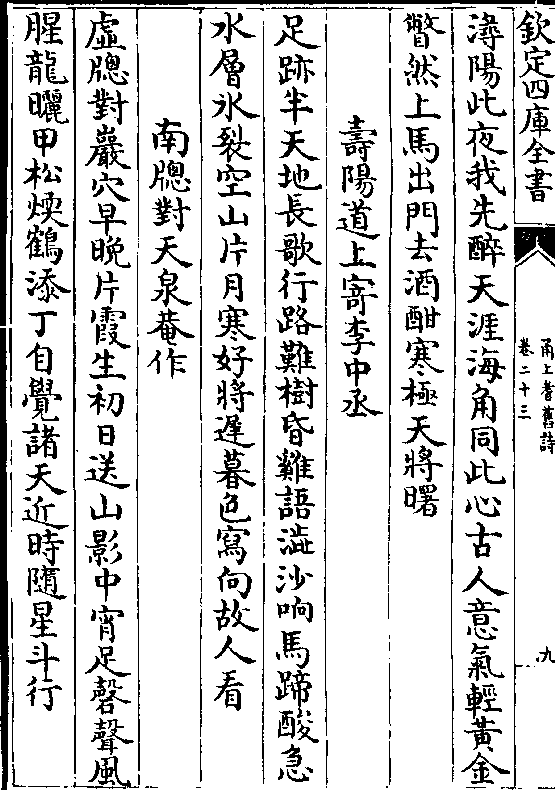 欽定四庫全書
甬上耆舊詩
卷二十三
九
潯陽此夜我先醉天涯海角同此心古人意氣輕黃金
瞥然上馬出門去酒酣寒極天將曙
壽陽道上寄李中丞
足跡半天地長歌行路難樹昏雞語澁沙响馬蹄酸急
水層氷裂空山片月寒好將遲暮色寫向故人看
南牕對天泉菴作
虛牕對巖穴早晚片霞生初日送山影中宵足磬聲風
腥龍曬甲松煗鶴添丁自覺諸天近時隨星斗行